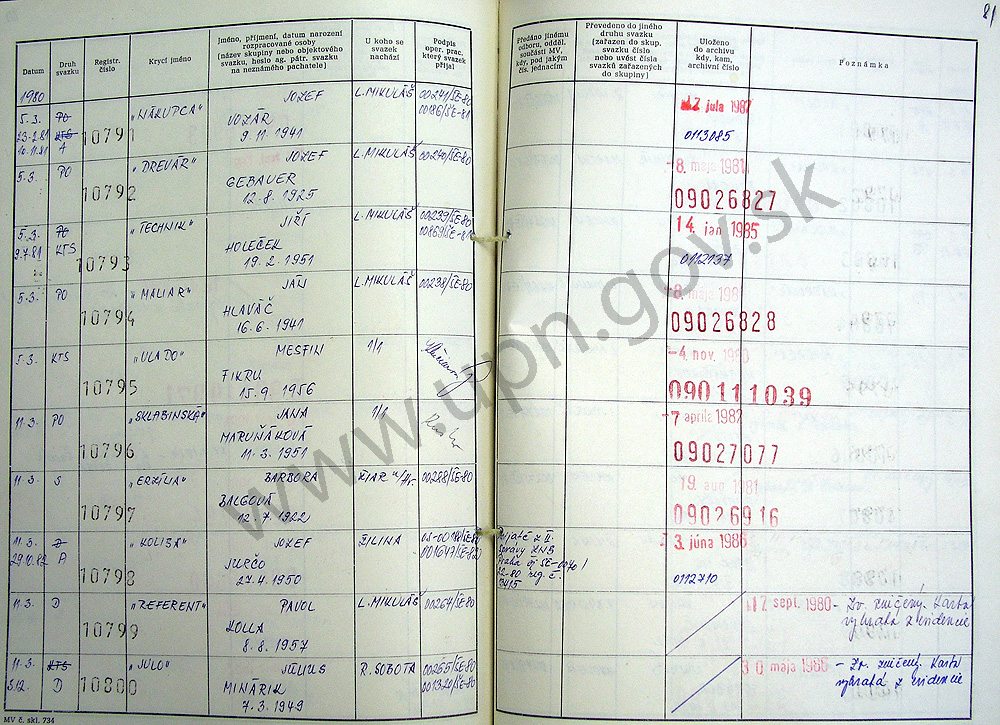 81
Datum
Druh svazku
Registr. číslo
Krycí jméno
Jméno, příjmení, datum narození
rozpracované osoby
(název skupiny nebo objektového
svazku, heslo ag. pátr. svazku
na neznámého pachatele)
U koho se
svazek
nachází
Podpis
oper. prac.
který svazek
přijal
Předáno jinému
odboru, odděl.
součásti MV,
kdy, pod jakým
čís. jednacím
Převedeno do jiného
druhu svazku
(zařazen do skup.
svazku čísla
nebo uvést čísla
svazků zařazených
do skupiny)
Uloženo
do archivu
kdy, kam,
archivní číslo
Poznámka
1980
5.3. PO 10791 "NÁKUPCA" JOZEF L. MIKULÁŠ 00241/ŠE-80
23.2.81 KTS VOZÁR 00186/ŠE-81
10.11.81 A 9.11.1941
12 júla 1987
0113085
5.3. PO 10792 "DREVÁR" JOZEF L. MIKULÁŠ 00240/ŠE-80
GEBAUER
12.8.1925
-8. mája 1981
09026827
5.3. PO 10793 "TECHNIK" JIŘÍ L. MIKULÁŠ 00239/ŠE-80
9.7.81 KTS HOLEČEK 00869/ŠE-81
19.2.1951
14. jan 1985
0112137
5.3. PO 10794 "MALIAR" JÁN L. MIKULÁŠ 00238/ŠE-80
HLAVÁČ
16.6.1941
-8. mája 1981
09026828
5.3. KTS 10795 "VLADO" MESFIN 1/1
FIKRU
15.9.1956
-4. nov. 1980
090111039
11.3. PO 10796 "SKLABINSKÁ" JANA 1/1
MARUŇÁKOVÁ
11.3.1951
-7 apríla 1982
09027077
11.3. S 10797 "ERZÍLIA" BARBORA ŽIAR n/Hr. 00288/ŠE-80
BALGOVÁ
12.7.1922
19. aug 1981
09026916
11.3. D 10798 "KOLISA" JOZEF ŽILINA
29.10.82 A JURČO 001647/ŠE-82
27.4.1950
Prijaté z II.
správy ZNB
Praha
3. júna 1986
0112710
11.3. D 10799 "REFERENT" PAVOL L. MIKULÁŠ 00264/ŠE-80
KOLLA
8.8.1957
17. sept. 1980 - Zv. zničený. Karta
vybratá z evidencie
11.3. KTS 10800 "JULO" JÚLIUS R. SOBOTA 00265/ŠE-80
3.12. D MINÁRIK 001320/ŠE-80
7.3.1949
30. mája 1986 - Zv. zničený. Karta
vybratá z evidencie
MV č. skl. 734
www.upn.gov.sk